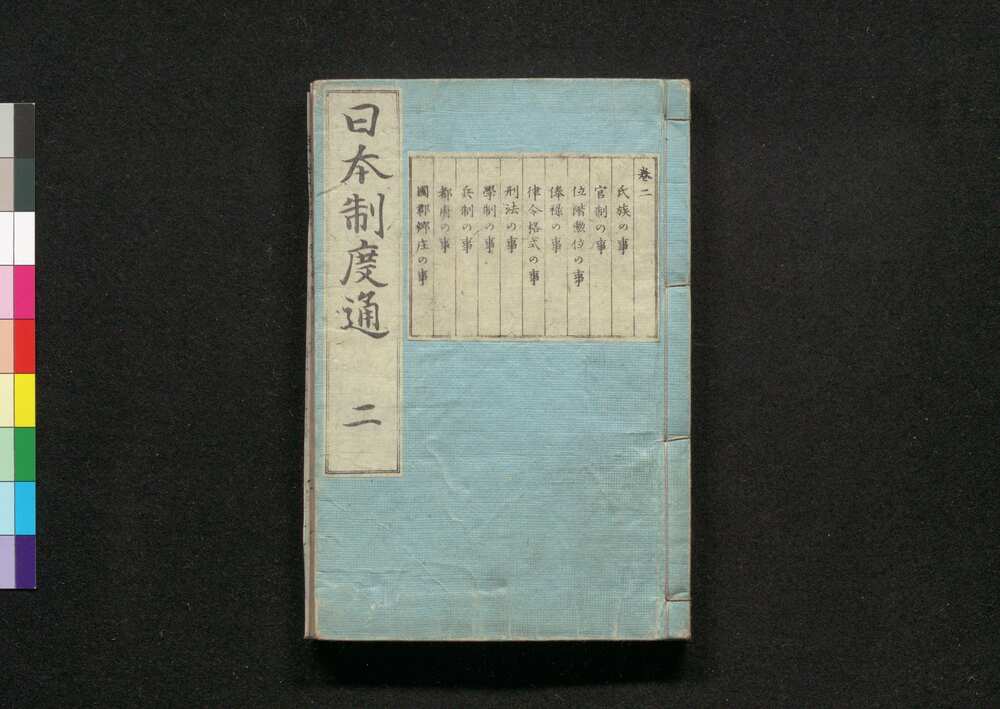 日本制度通 二
卷二
氏族の事
官制の事
位階勲位の事
俸禄の事
律令格式の事
刑法の事
學制の事
兵制の事
都府の事
國郡鄉庄の事